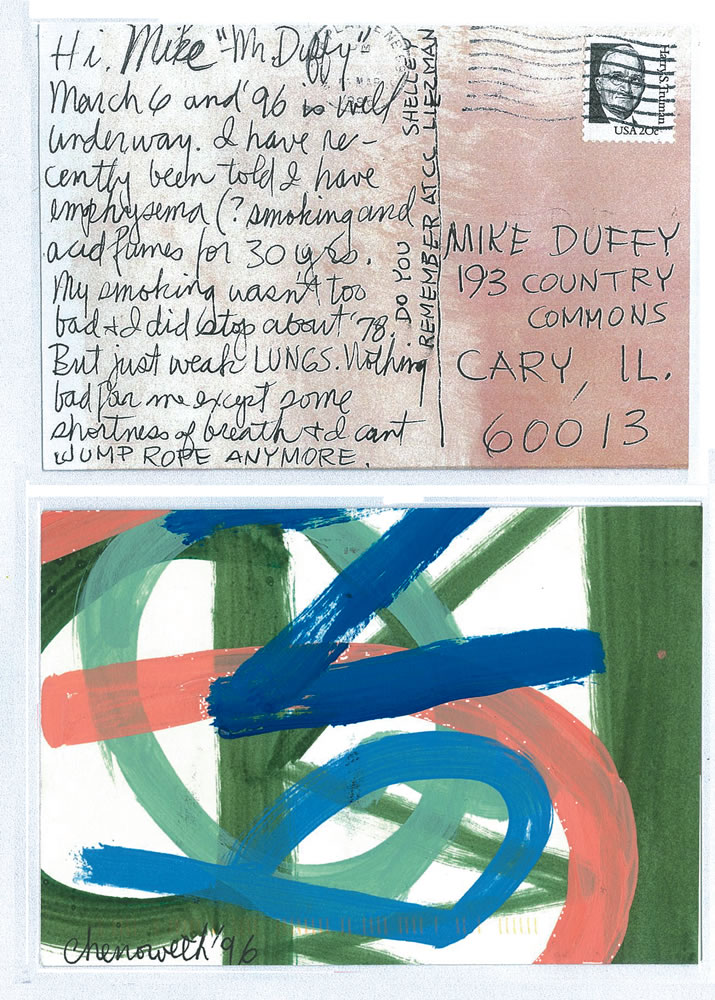 Hi, Mike "Mr. Duffy"
March 6 and '96 is well
underway. I have re-
cently been told I have
emphysema (? smoking and
acid fumes for 30 yrs.
My smoking wasn't too
bad & I did stop about '78.
But just weak LUNGS. Nothing
bad for me except some
shortness of breath & I cant
JUMP ROPE ANYMORE.
DO YOU SHELLEY
REMEMBER AT CC LIEZMAN
Harry S. Truman
USA 20c
MIKE DUFFY
193 COUNTRY
COMMONS
CARY, IL.
60013
Chenoweth '96